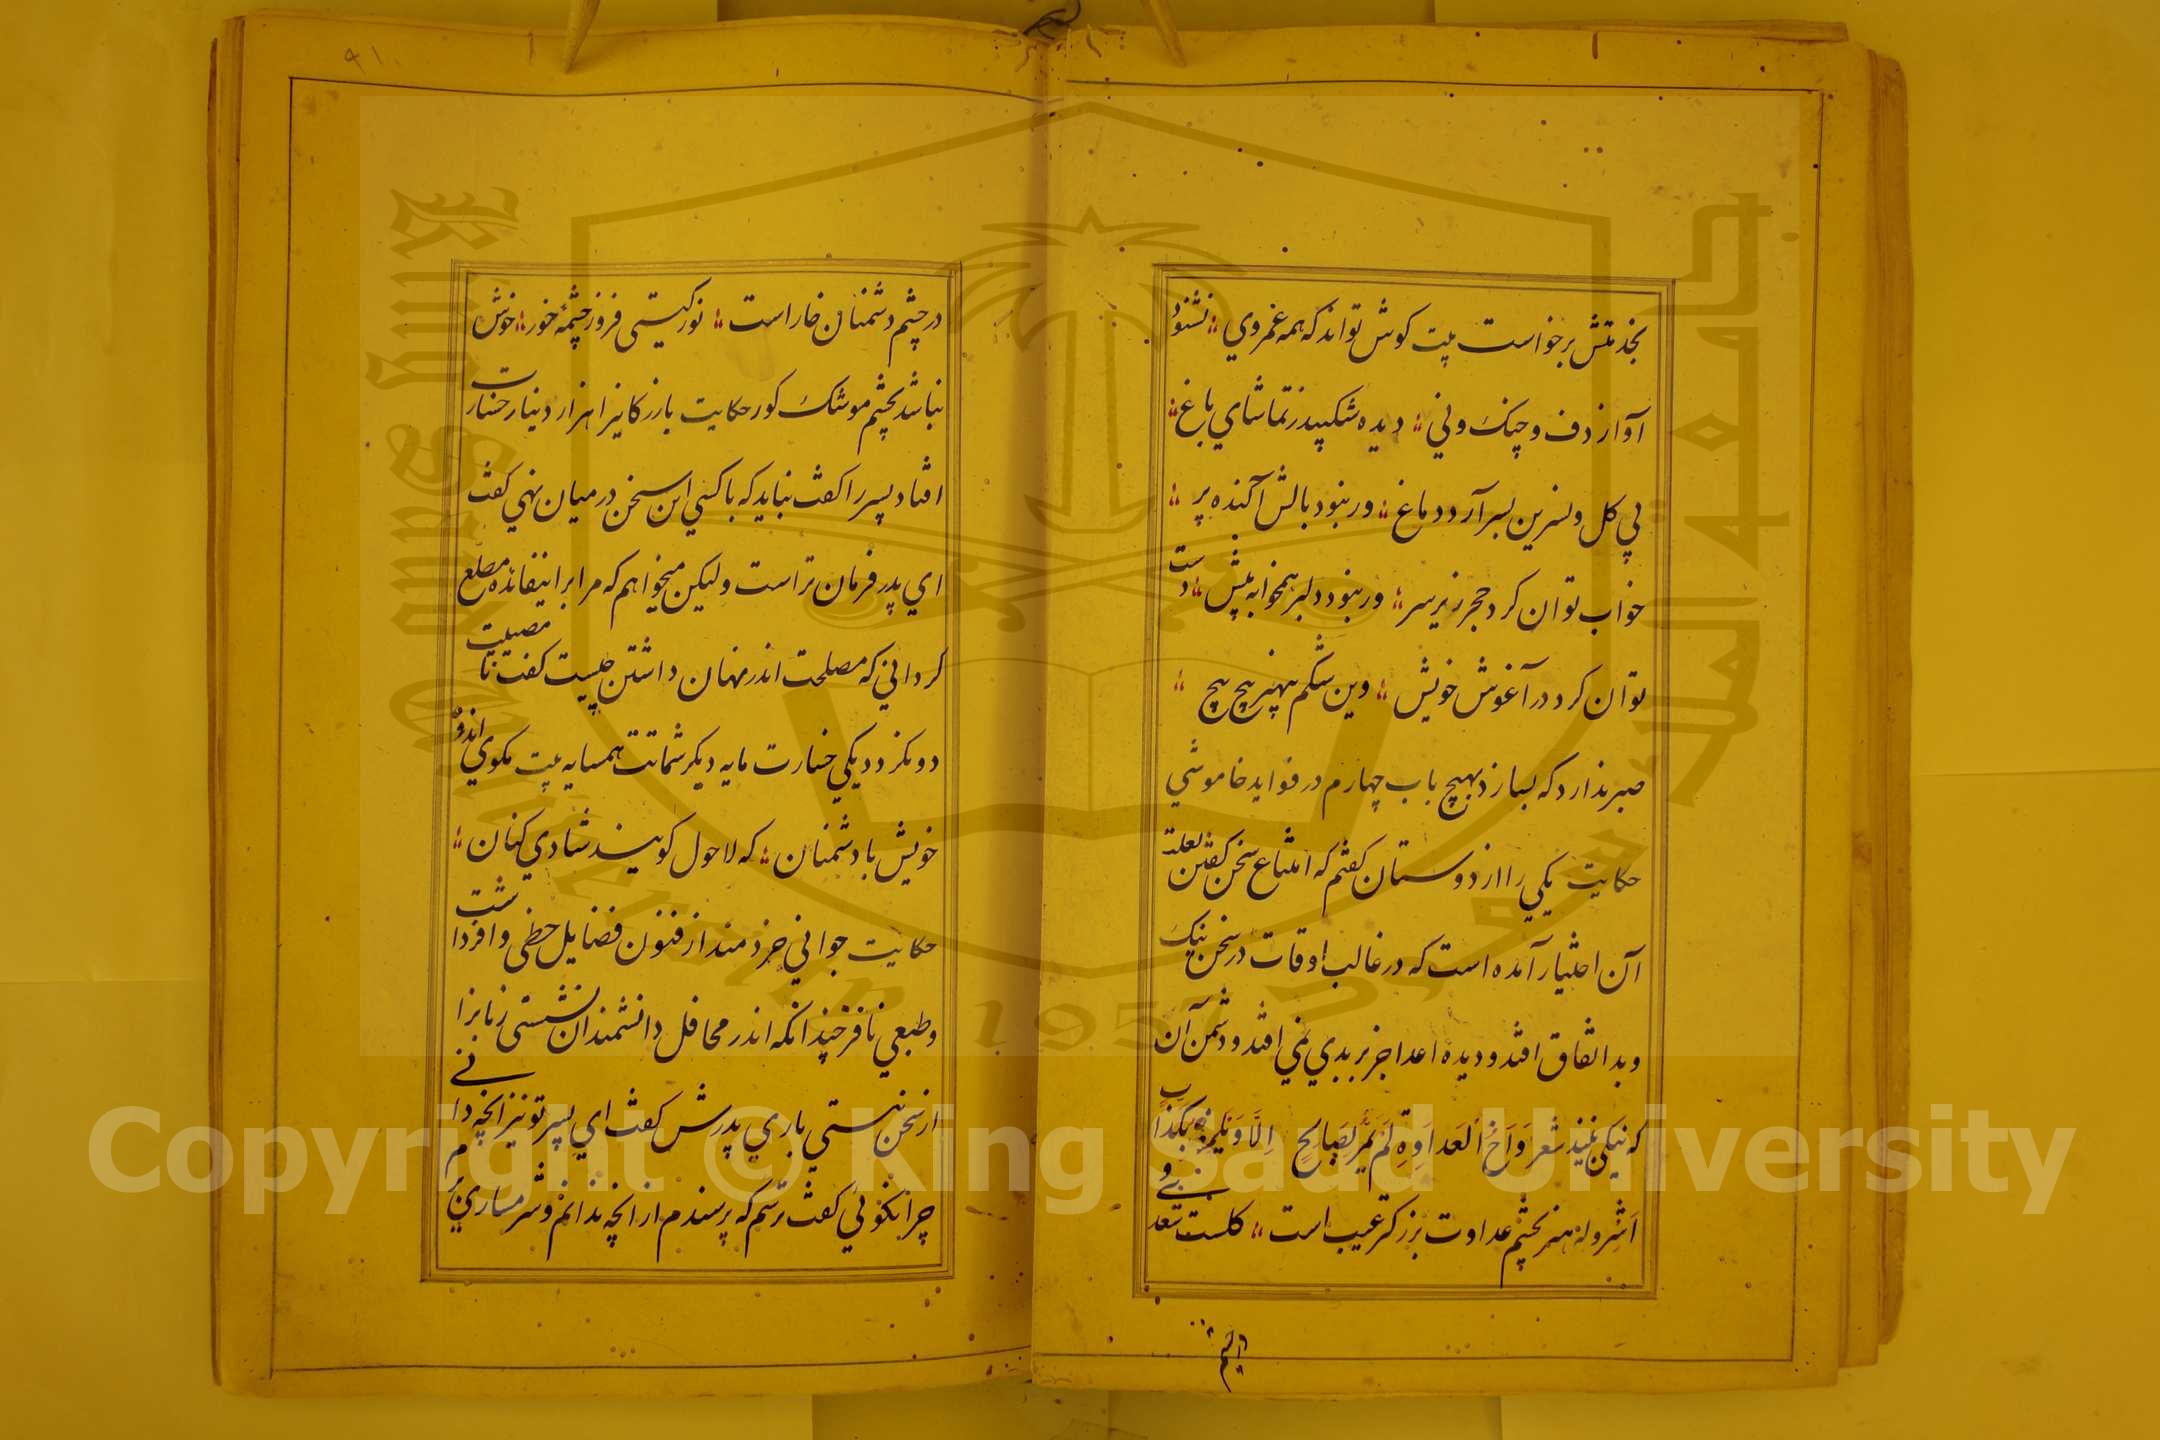 بخدمتش برخواست بیت کوش تواند که همه عمر وي نشنود
آواز دف و چنک و ني دیده شکیبد ز تماشاي باغ
بي کل و نسرین بسر آرد دماغ ور نبود بالش آکنده پر
خواب توان کرد حجر زیر سر ور نبود دلبر همخوابه پیش دست
توان کرد در آغوش خویش وین شکم بیهنر پیچ پیچ
صبر ندارد که بسازد بهیچ باب چهارم در فواید خاموشي
حکایت یکي را از دوستان کفتم که امتناع سخن کفتن بعلت
آن اختیار آمده است که در غالب اوقات در سخن نیک
و بد اتفاق افتد و دیده اعدا جز بر بدي نمي افتد و دشمن آن
که نیکي نبیند شعر وَاَخُ العَدَاوَةِ لَم یَمُر بِصَالِحٍ اِلَّا وَیَلمِزُهُ بِکَذَّابٍ
اَشِرٍ وله هنر بچشم عداوت بزرکتر عیب است کلست سعدي و
در چشم دشمنان خار است نور کیتي فروز چشمهٔ خور خوش
نباشد بچشم موشک کور حکایت بازرکانیرا هزار دینار خسارت
افتاد پسر را کفت نباید که با کسي این سخن در میان نهي کفت
اي پدر فرمان تراست ولیکن میخواهم که مرا براینفائده مطلع
کرداني که مصلحت اندر نهان داشتن چیست کفت تا مصیبت
دو نکردد یکي خسارت مایه دیکر شماتت همسایه بیت مکوي اندوه
خویش با دشمنان که لاحول کویند شادي کنان
حکایت جواني خردمند از فنون فضایل حظي وافر داشت
و طبعي نافر چندانکه اندر محافل دانشمندان نشستي زبانرا
از سخن ببستي باري پدرش کفت اي پسر تو نیز انچه داني
چرا نکوئي کفت ترسم که پرسندم از انچه ندانم و شرمساري برم
در چشم
Copyright © King Saud University
King Saud University
1957